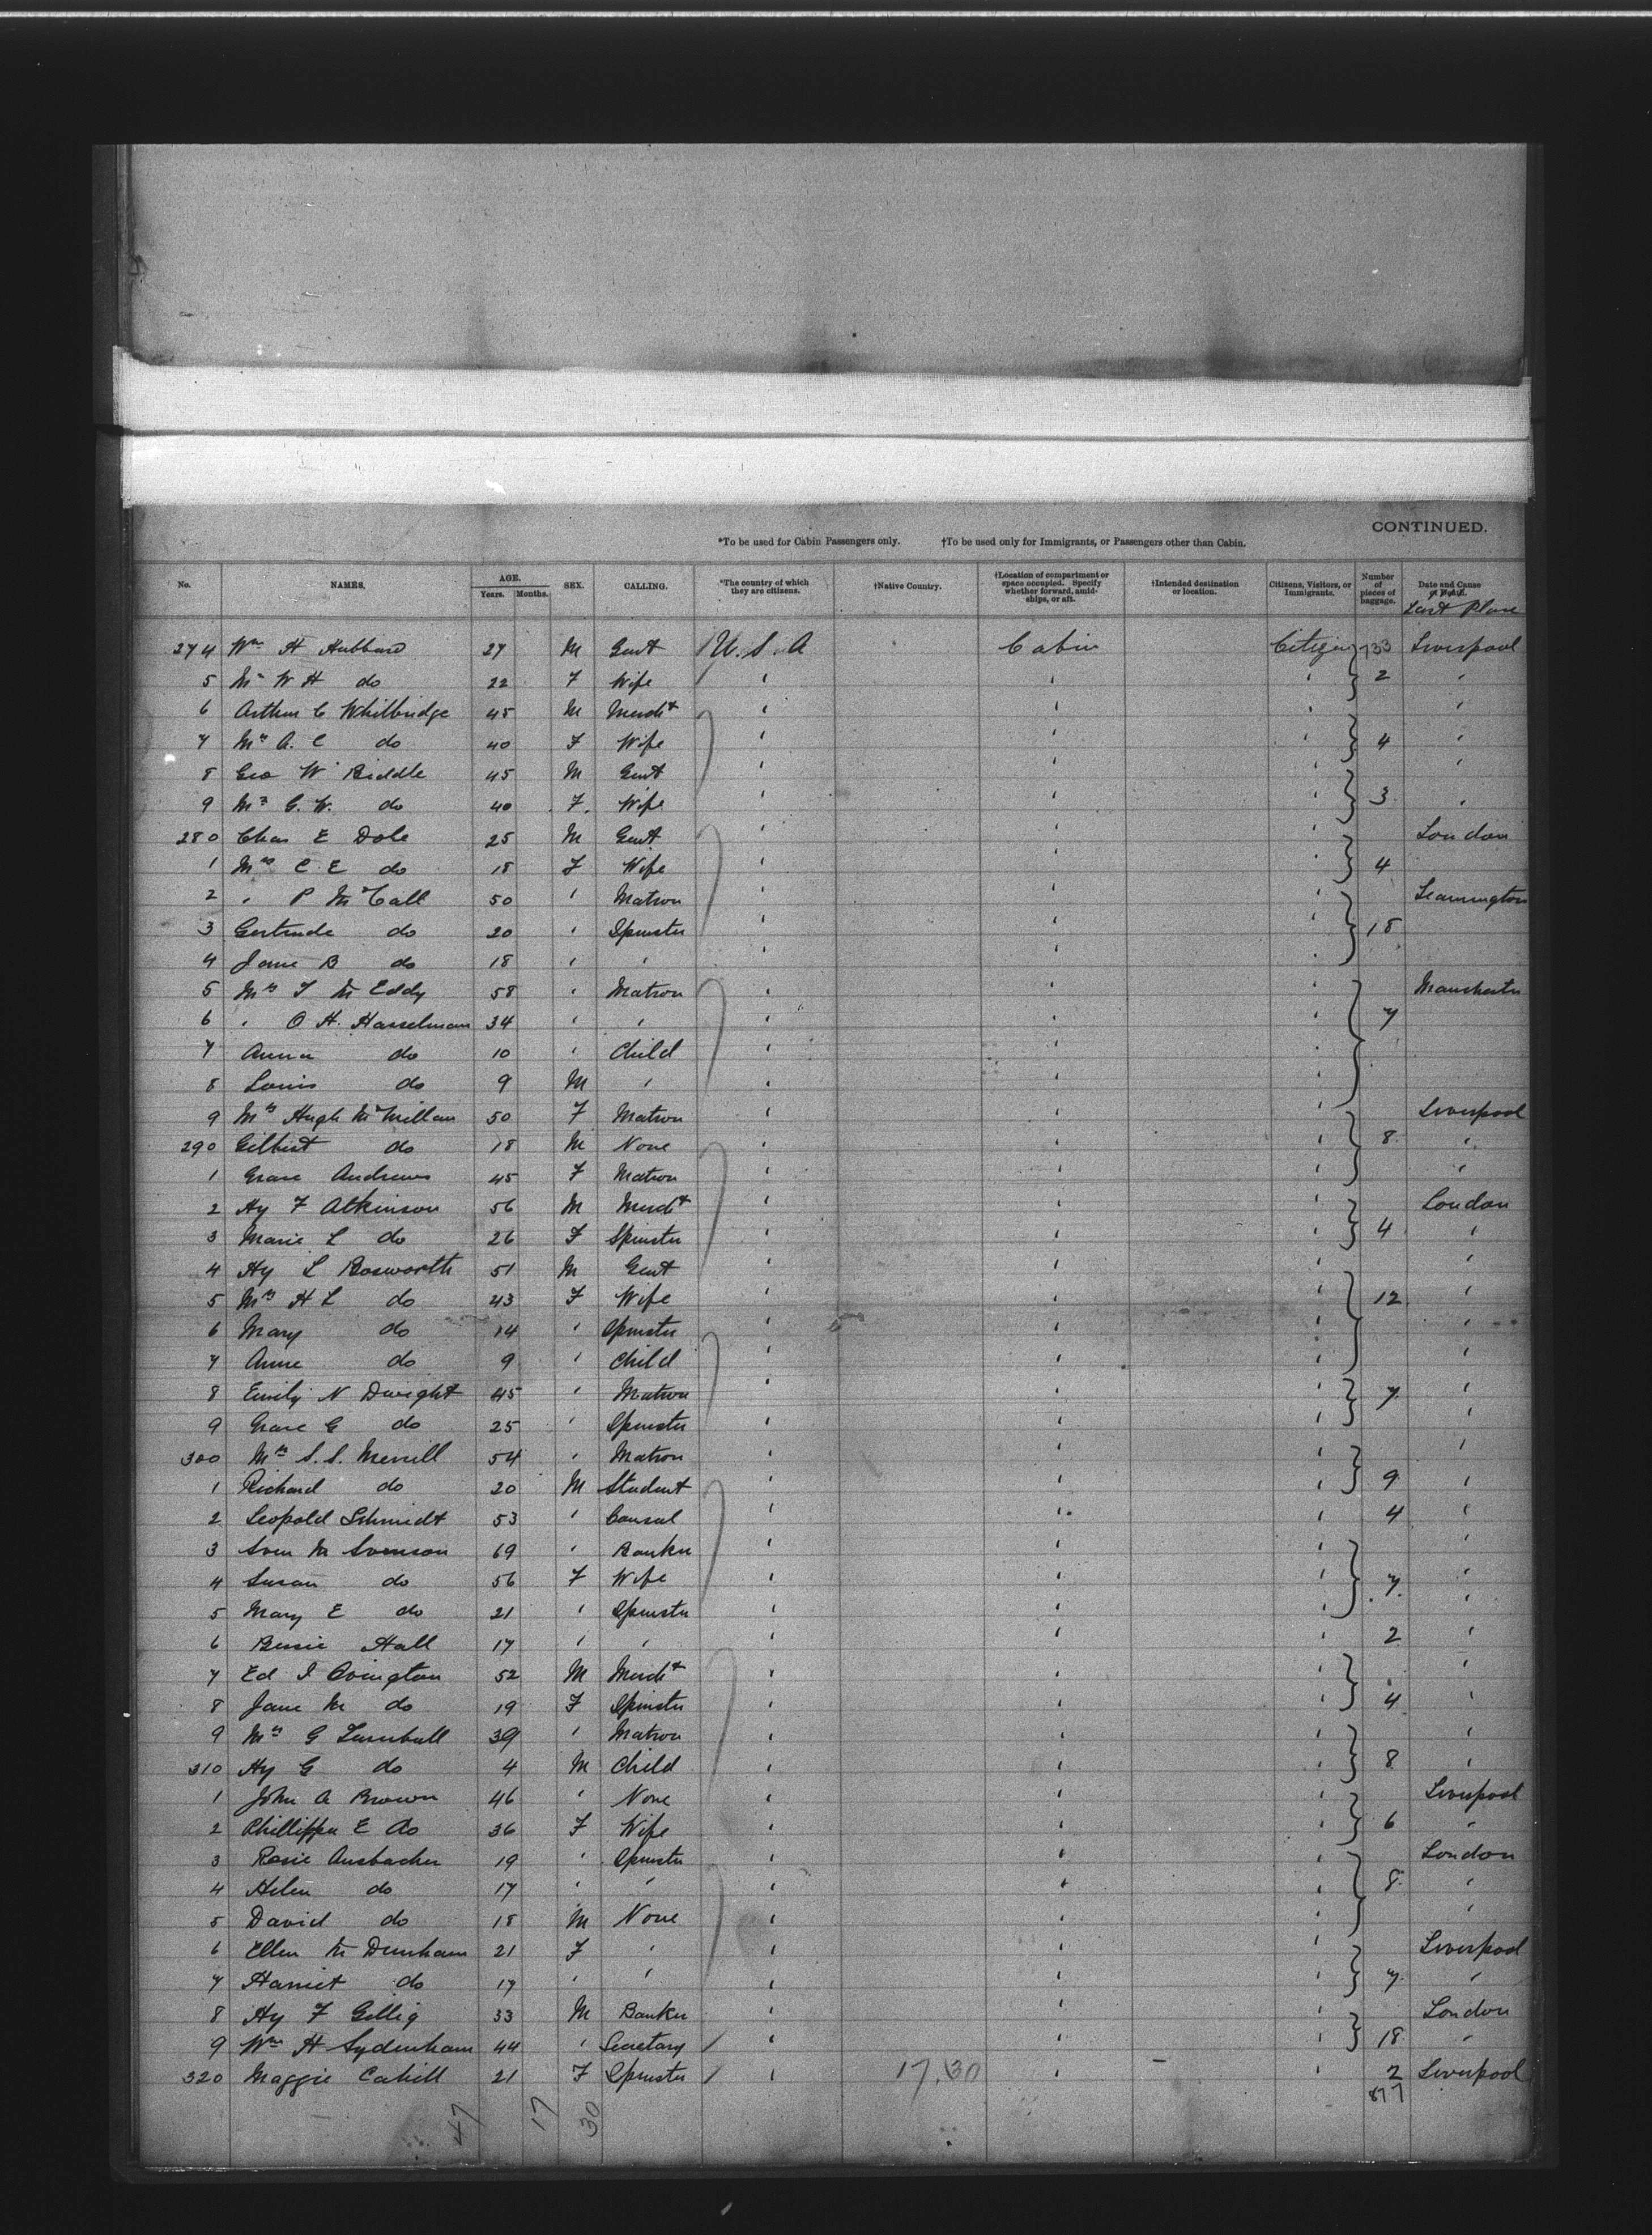 CONTINUED.
*To be used for Cabin Passengers only. †To be used only for Immigrants, or Passengers other than Cabin.
No. NAMES. AGE. Years. Months. SEX. CALLING. *The country of which they are citizens. †Native Country. †Location of compartment or space occupied. Specify whether forward, amidships, or aft. †Intended destination or location. Citizens, Visitors, or Immigrants. Number of pieces of baggage. Date and Cause of Death.
Last Place
274 Wm H Hubbard 27 M Gent U.S.A Cabin Citizen 733 Liverpool
5 Mrs W H do 22 F Wife " " " 2 "
6 Arthur C Whitbridge 45 M Mercht " " " "
7 Mrs A. C do 40 F Wife " " " 4 "
8 Geo W Biddle 45 M Gent " " " "
9 Mrs G. W. do 40 F. Wife " " " 3 "
280 Chas E Dole 25 M Gent " " " London
1 Mrs C. E do 18 F Wife " " " 4
2 " P McCall 50 " Matron " " " Leamington
3 Gertrude do 20 " Spinster " " " 18
4 Jane B do 18 " " " " "
5 Mrs T M Eddy 58 " Matron " " " Manchester
6 " O H. Hasselman 34 " " " " " 7
7 Anna do 10 " Child " " "
8 Louis do 9 M " " " "
9 Mrs Hugh McMillan 50 F Matron " " " Liverpool
290 Gilbert do 18 M None " " " 8 "
1 Grace Andrews 45 F Matron " " " "
2 Hy F Atkinson 56 M Mercht " " " London
3 Marie L do 26 F Spinster " " " 4 "
4 Hy L Bosworth 51 M Gent " " " "
5 Mrs H L do 43 F Wife " " " 12 "
6 Mary do 14 " Spinster " " " "
7 Anne do 9 " Child " " " "
8 Emily N Dwight 45 " Matron " " " 7 "
9 Grace G do 25 " Spinster " " " "
300 Mrs S. S. Merrill 54 " Matron " " " "
1 Richard do 20 M Student " " " 9 "
2 Leopold Schmidt 53 " Consul " " " 4 "
3 Sven M Svenson 69 " Banker " " " "
4 Susan do 56 F Wife " " " 7. "
5 Mary E do 21 " Spinster " " " "
6 Bessie Hall 17 " " " " " 2 "
7 Ed I Ovington 52 M Mercht " " " "
8 Jane M do 19 F Spinster " " " 4 "
9 Mrs G Turnbull 39 " Matron " " " "
310 Hy G do 4 M Child " " " 8 "
1 John A Brown 46 " None " " " Liverpool
2 Phillippa E do 36 F Wife " " " 6 "
3 Rosie Ansbacher 19 " Spinster " " " London
4 Helen do 17 " " " " " 8 "
5 David do 18 M None " " " "
6 Ellen M Dunham 21 F " " " " Liverpool
7 Harriet do 17 " " " " " 7 "
8 Hy F Gillig 33 M Banker " " " London
9 Wm H Sydenham 44 " Secretary " " " 18 "
320 Maggie Cahill 21 F Spinster " 17.30 " " 2 Liverpool
877
47 17 30